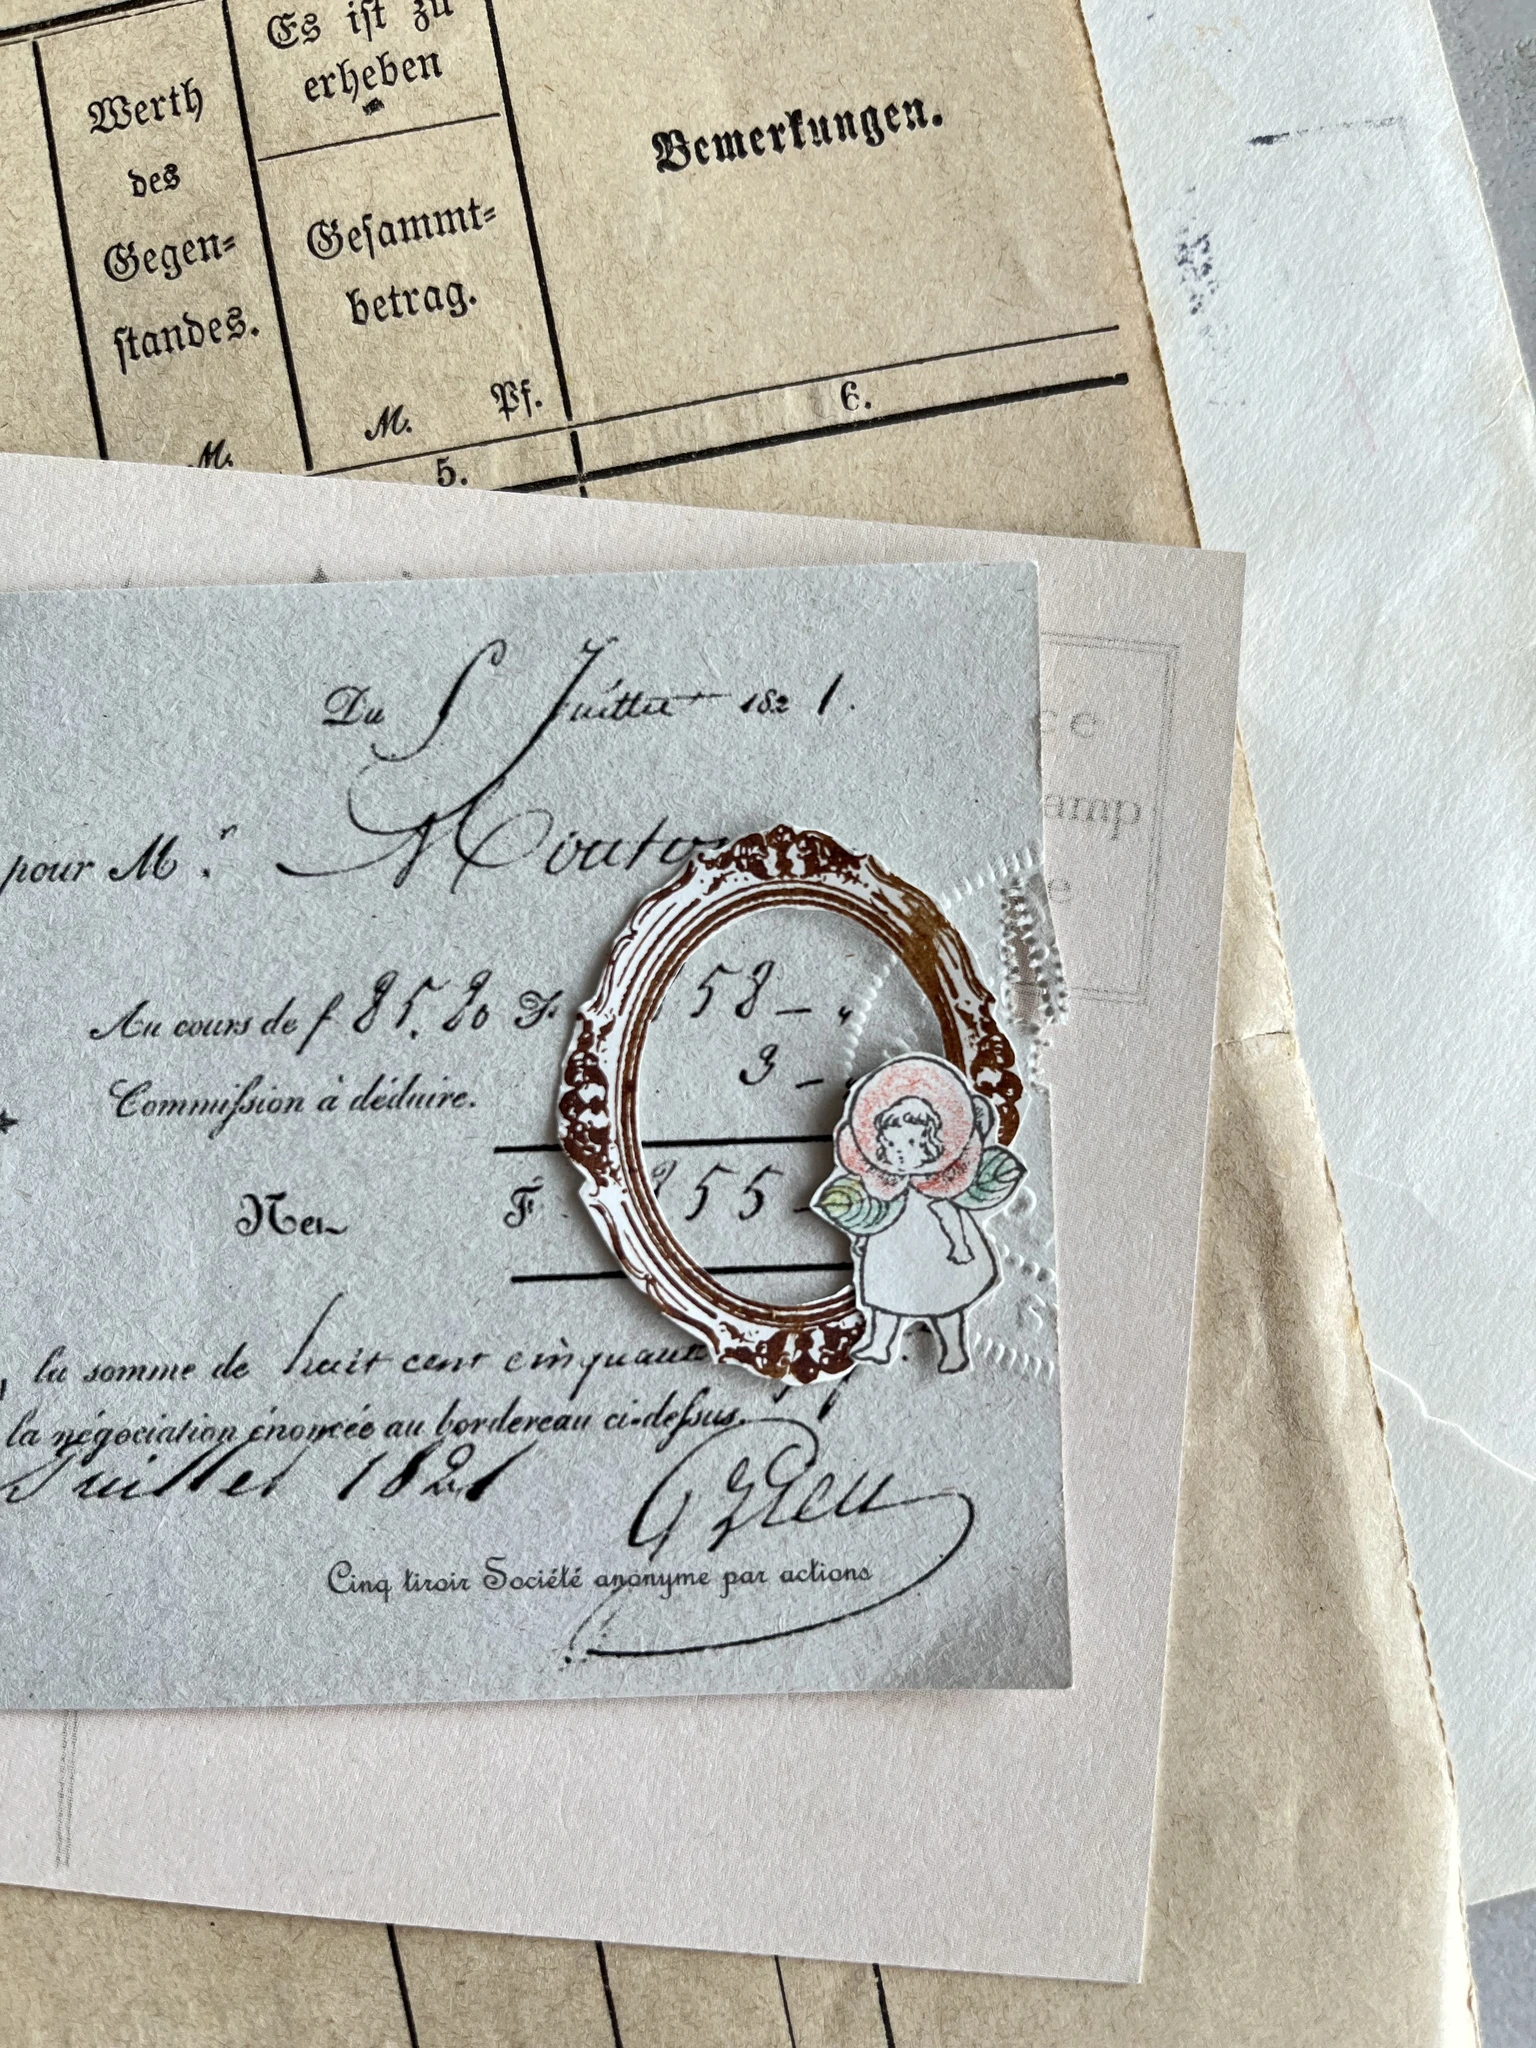 Es ist zu
erheben
Werth
des
Gegen=
standes.
M.
Gesammt=
betrag.
M. Pf.
5.
Bemerkungen.
6.
Du 5 Juillet 1821.
pour M.r Mouto
Au cours de f 85.20 F. 58 — "
Commission à déduire. 3 —
Net F. 855
la somme de huit cent cinquante
la négociation énoncée au bordereau ci-dessus.
Juillet 1821
Cinq tiroir Société anonyme par actions
ce
amp
e